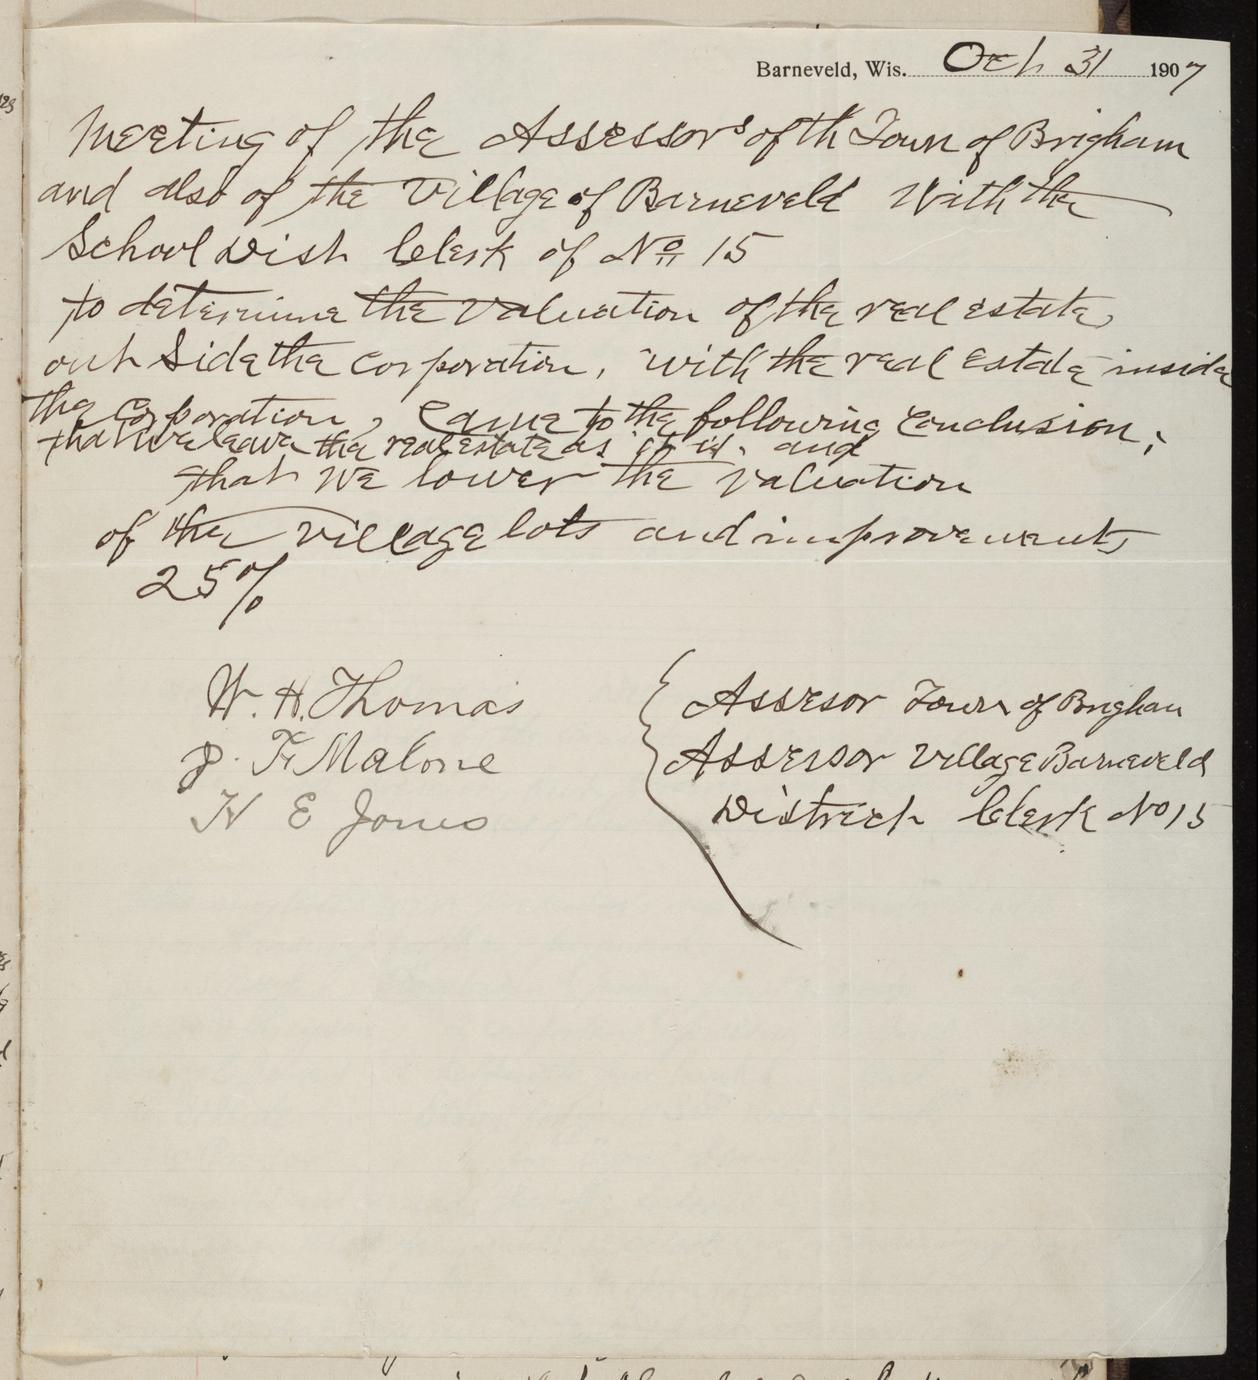 Barneveld, Wis. Oct 31 1907
Meeting of the Assessors of th Town of Brigham
and also of the Village of Barneveld With the
School Dist Clerk of No 15
to determine the valuation of the real estate,
out Side the corporation, with the real Estate inside
the corporation, came to the following conclusion;
that we leave the real estate as it is. and
that We lower the valuation
of the village lots and improvements
25%
W. H. Thomas Assesor Town of Brigham
J. F. Malone Assessor Village Barneveld
H E Jones District Clerk No 15